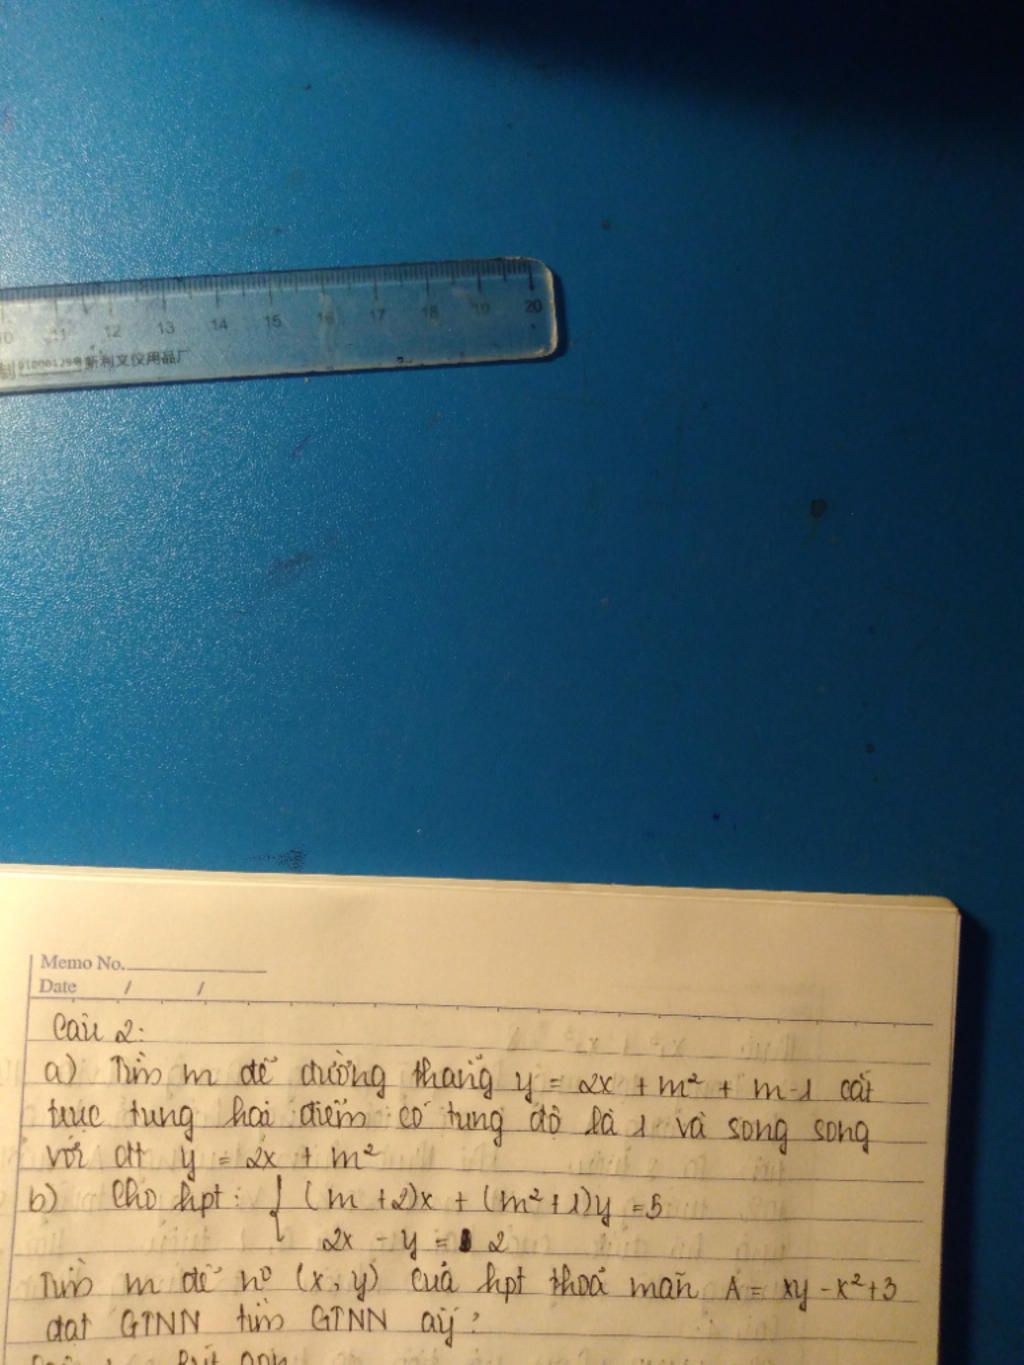 10 11 12 13 14 15 16 17 18 19 20
制 01000129号 新利文仪用品厂
Memo No.
Date / /
Câu 2:
a) Tìm m để đường thẳng y = 2x + m² + m - 1 cắt
trục tung tại điểm có tung độ là 1 và song song
với đt y = 2x + m²
b) Cho hpt: { (m + 2)x + (m² + 1)y = 5
2x - y = 2
Tìm m để n⁰ (x, y) của hpt thoả mãn A = xy - x² + 3
đạt GTNN tìm GTNN ấy?